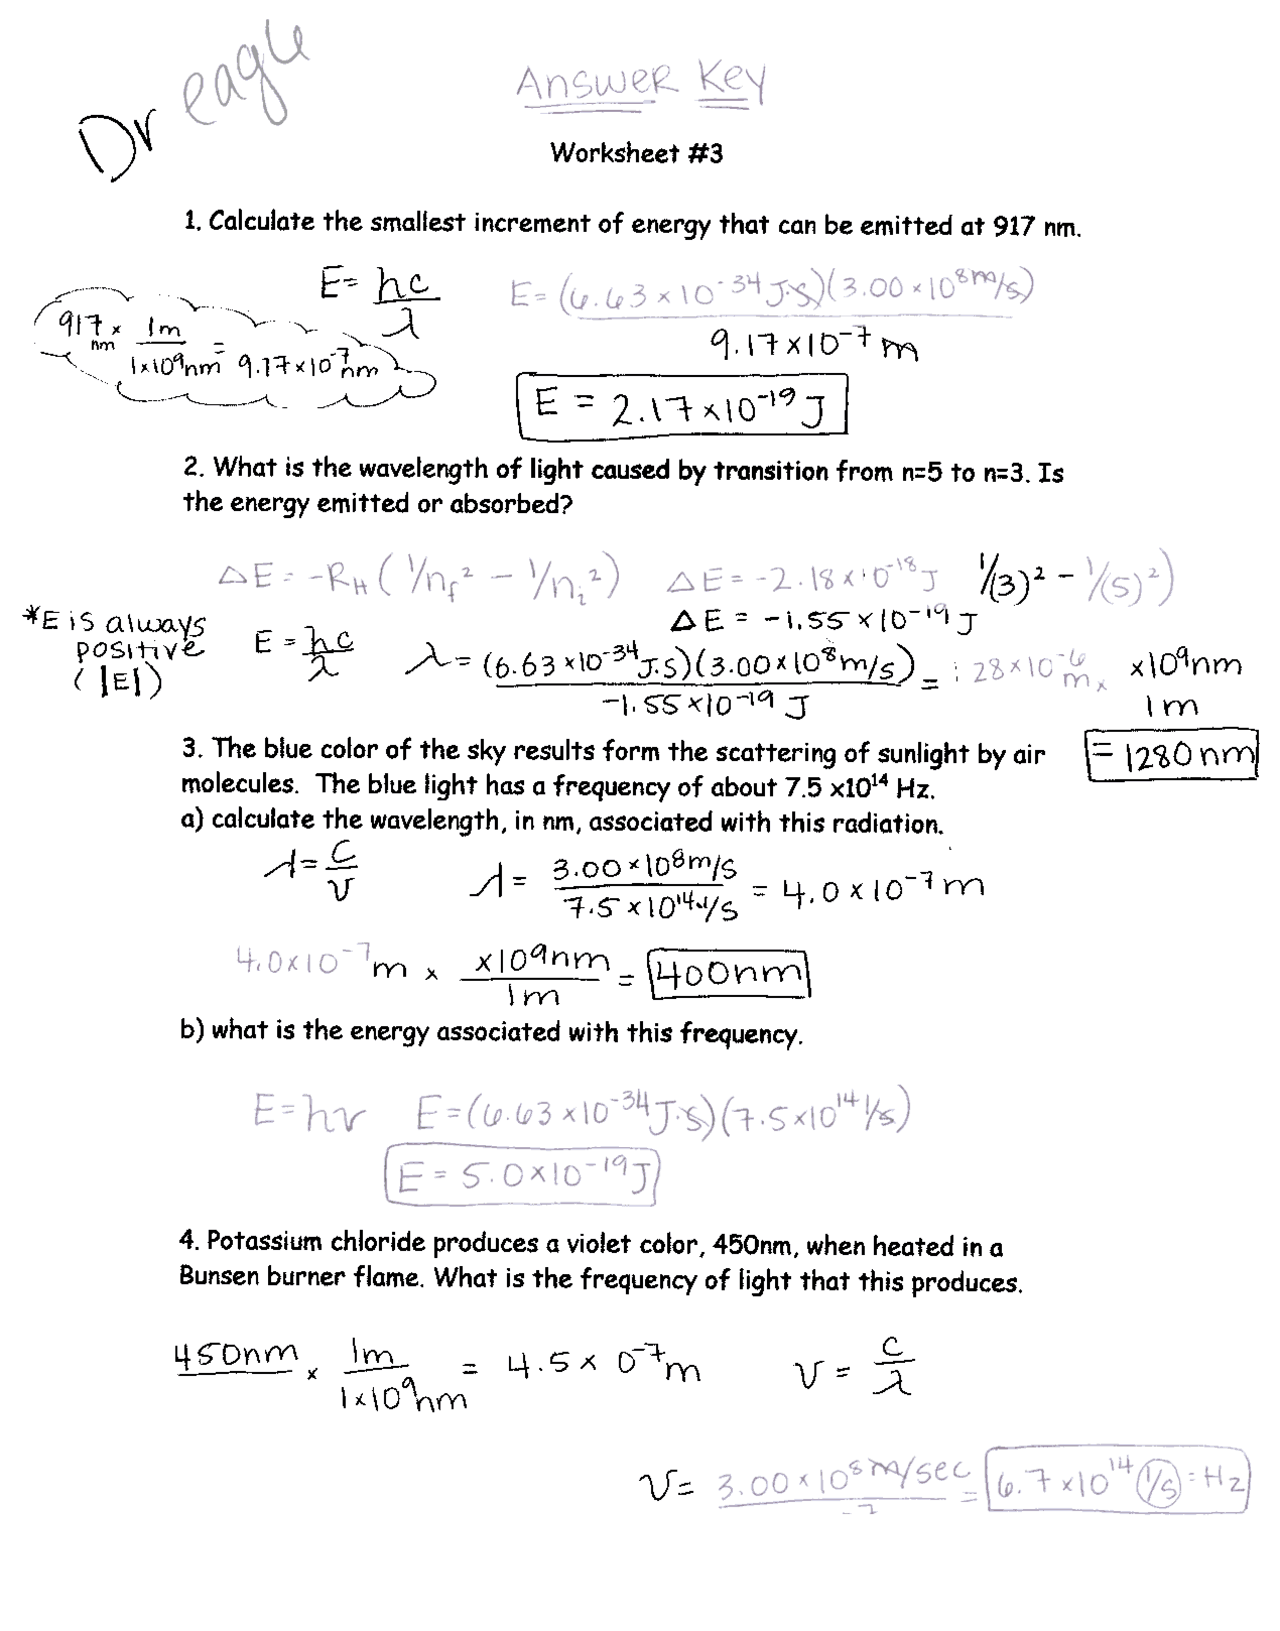 Dr eagle
Answer Key
Worksheet #3
1. Calculate the smallest increment of energy that can be emitted at 917 nm.
E = hc/λ
E = (6.63 × 10⁻³⁴ J·s)(3.00 × 10⁸ m/s)
9.17 × 10⁻⁷ m
917 nm × 1m / 1×10⁹ nm = 9.17 × 10⁻⁷ nm
E = 2.17 × 10⁻¹⁹ J
2. What is the wavelength of light caused by transition from n=5 to n=3. Is
the energy emitted or absorbed?
ΔE = -R_H ( 1/n_f² - 1/n_i² ) ΔE = -2.18 × 10⁻¹⁸ J 1/(3)² - 1/(5)² )
ΔE = -1.55 × 10⁻¹⁹ J
*E is always
positive
( |E| )
E = hc/λ
λ = (6.63 × 10⁻³⁴ J·s)(3.00 × 10⁸ m/s) / -1.55 × 10⁻¹⁹ J = 28 × 10⁻⁶ m × ×10⁹ nm / 1m
= 1280 nm
3. The blue color of the sky results form the scattering of sunlight by air
molecules. The blue light has a frequency of about 7.5 x10¹⁴ Hz.
a) calculate the wavelength, in nm, associated with this radiation.
λ = c/ν λ = 3.00 × 10⁸ m/s / 7.5 × 10¹⁴ 1/s = 4.0 × 10⁻⁷ m
4.0 × 10⁻⁷ m × ×10⁹ nm / 1m = 400 nm
b) what is the energy associated with this frequency.
E = hν E = (6.63 × 10⁻³⁴ J·s)(7.5 × 10¹⁴ 1/s)
E = 5.0 × 10⁻¹⁹ J
4. Potassium chloride produces a violet color, 450nm, when heated in a
Bunsen burner flame. What is the frequency of light that this produces.
450nm × 1m / 1×10⁹ nm = 4.5 × 0⁻⁷ m ν = c/λ
ν = 3.00 × 10⁸ m/sec = 6.7 × 10¹⁴ 1/s = Hz